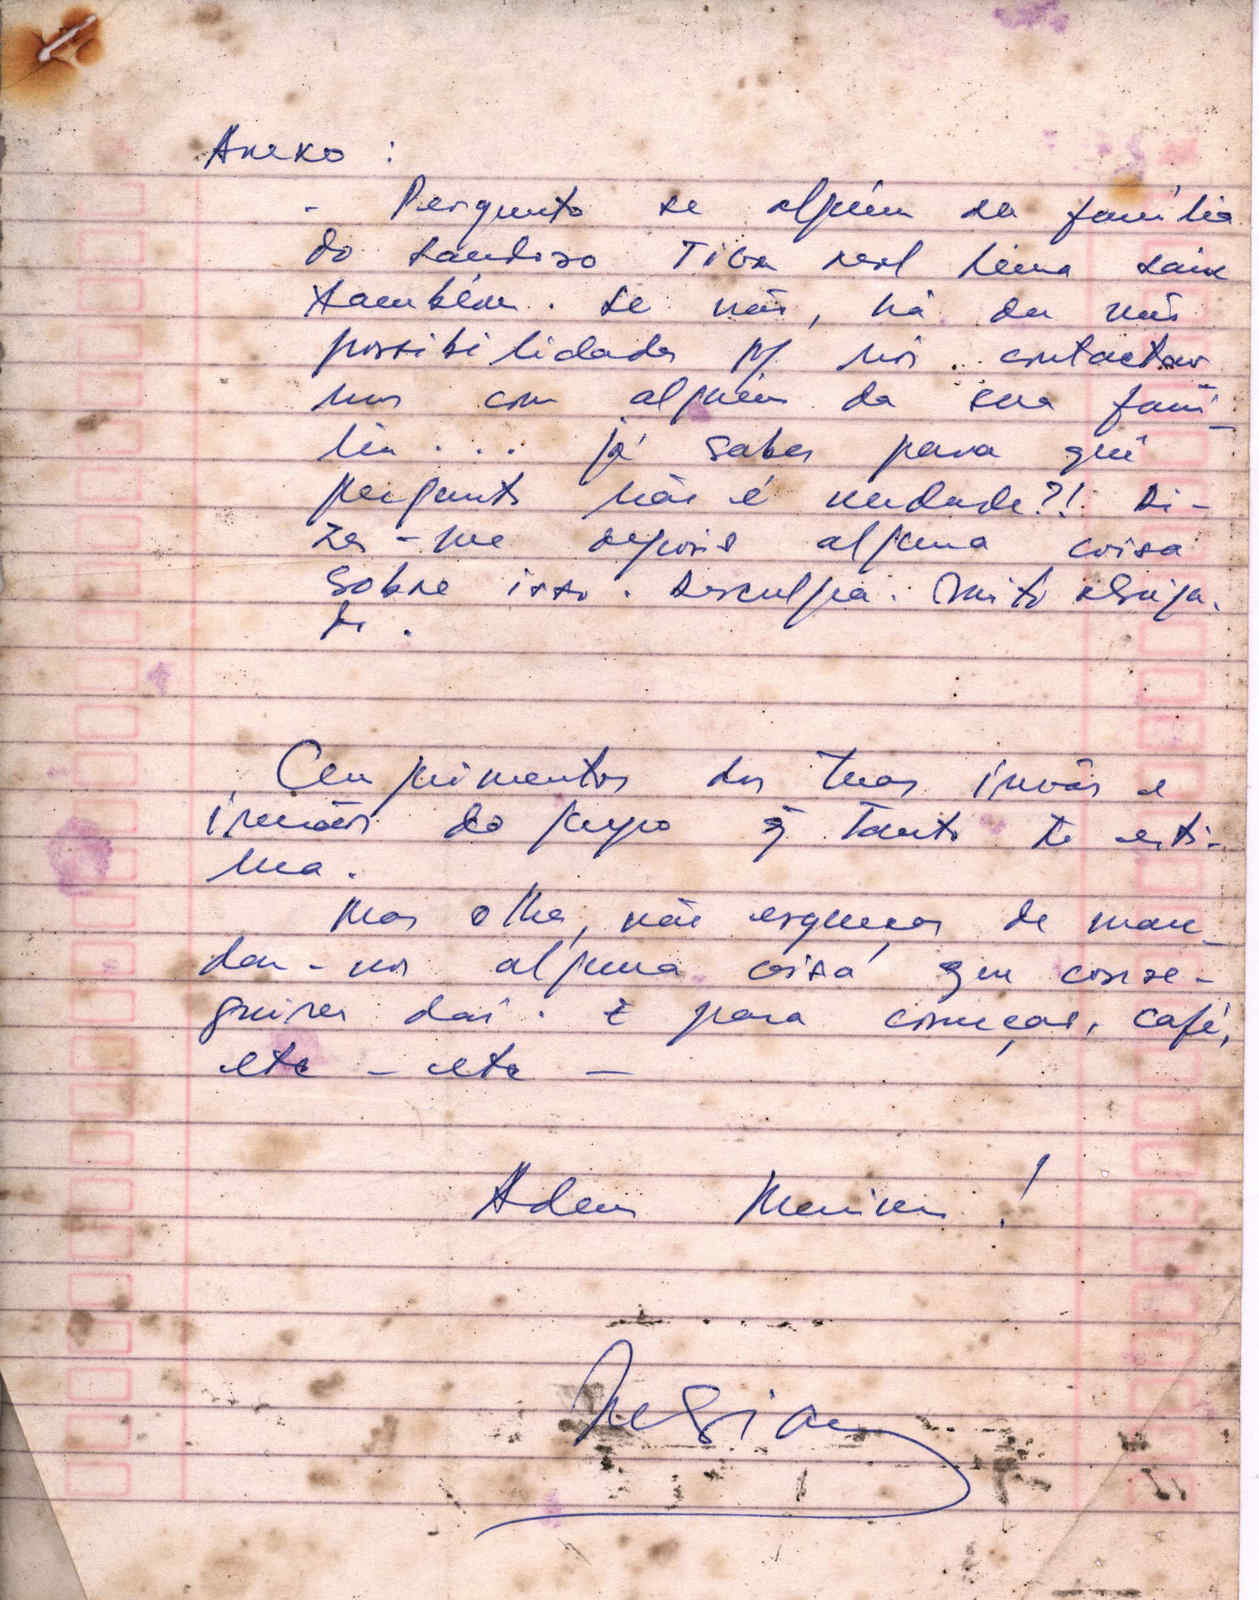 Anexo :
- Pergunto se alguém da família
do Tibor sair
também. Se não, há ou não
possibilidades p/ nós contactar
mos com alguém da sua famí-
lia . . . já sabes para quê
pergunto não é verdade?! Di-
zes-me depois alguma coisa
sobre isso. Desculpa. Muito obriga-
do.
Cumprimentos dos teus irmãos e
irmãos do grupo q̃ tanto te esti-
ma.
Mas olha, não esqueças de man-
dar-nos alguma coisa que conse-
guires daí. E para começar, café,
etc - etc -
Adeus !